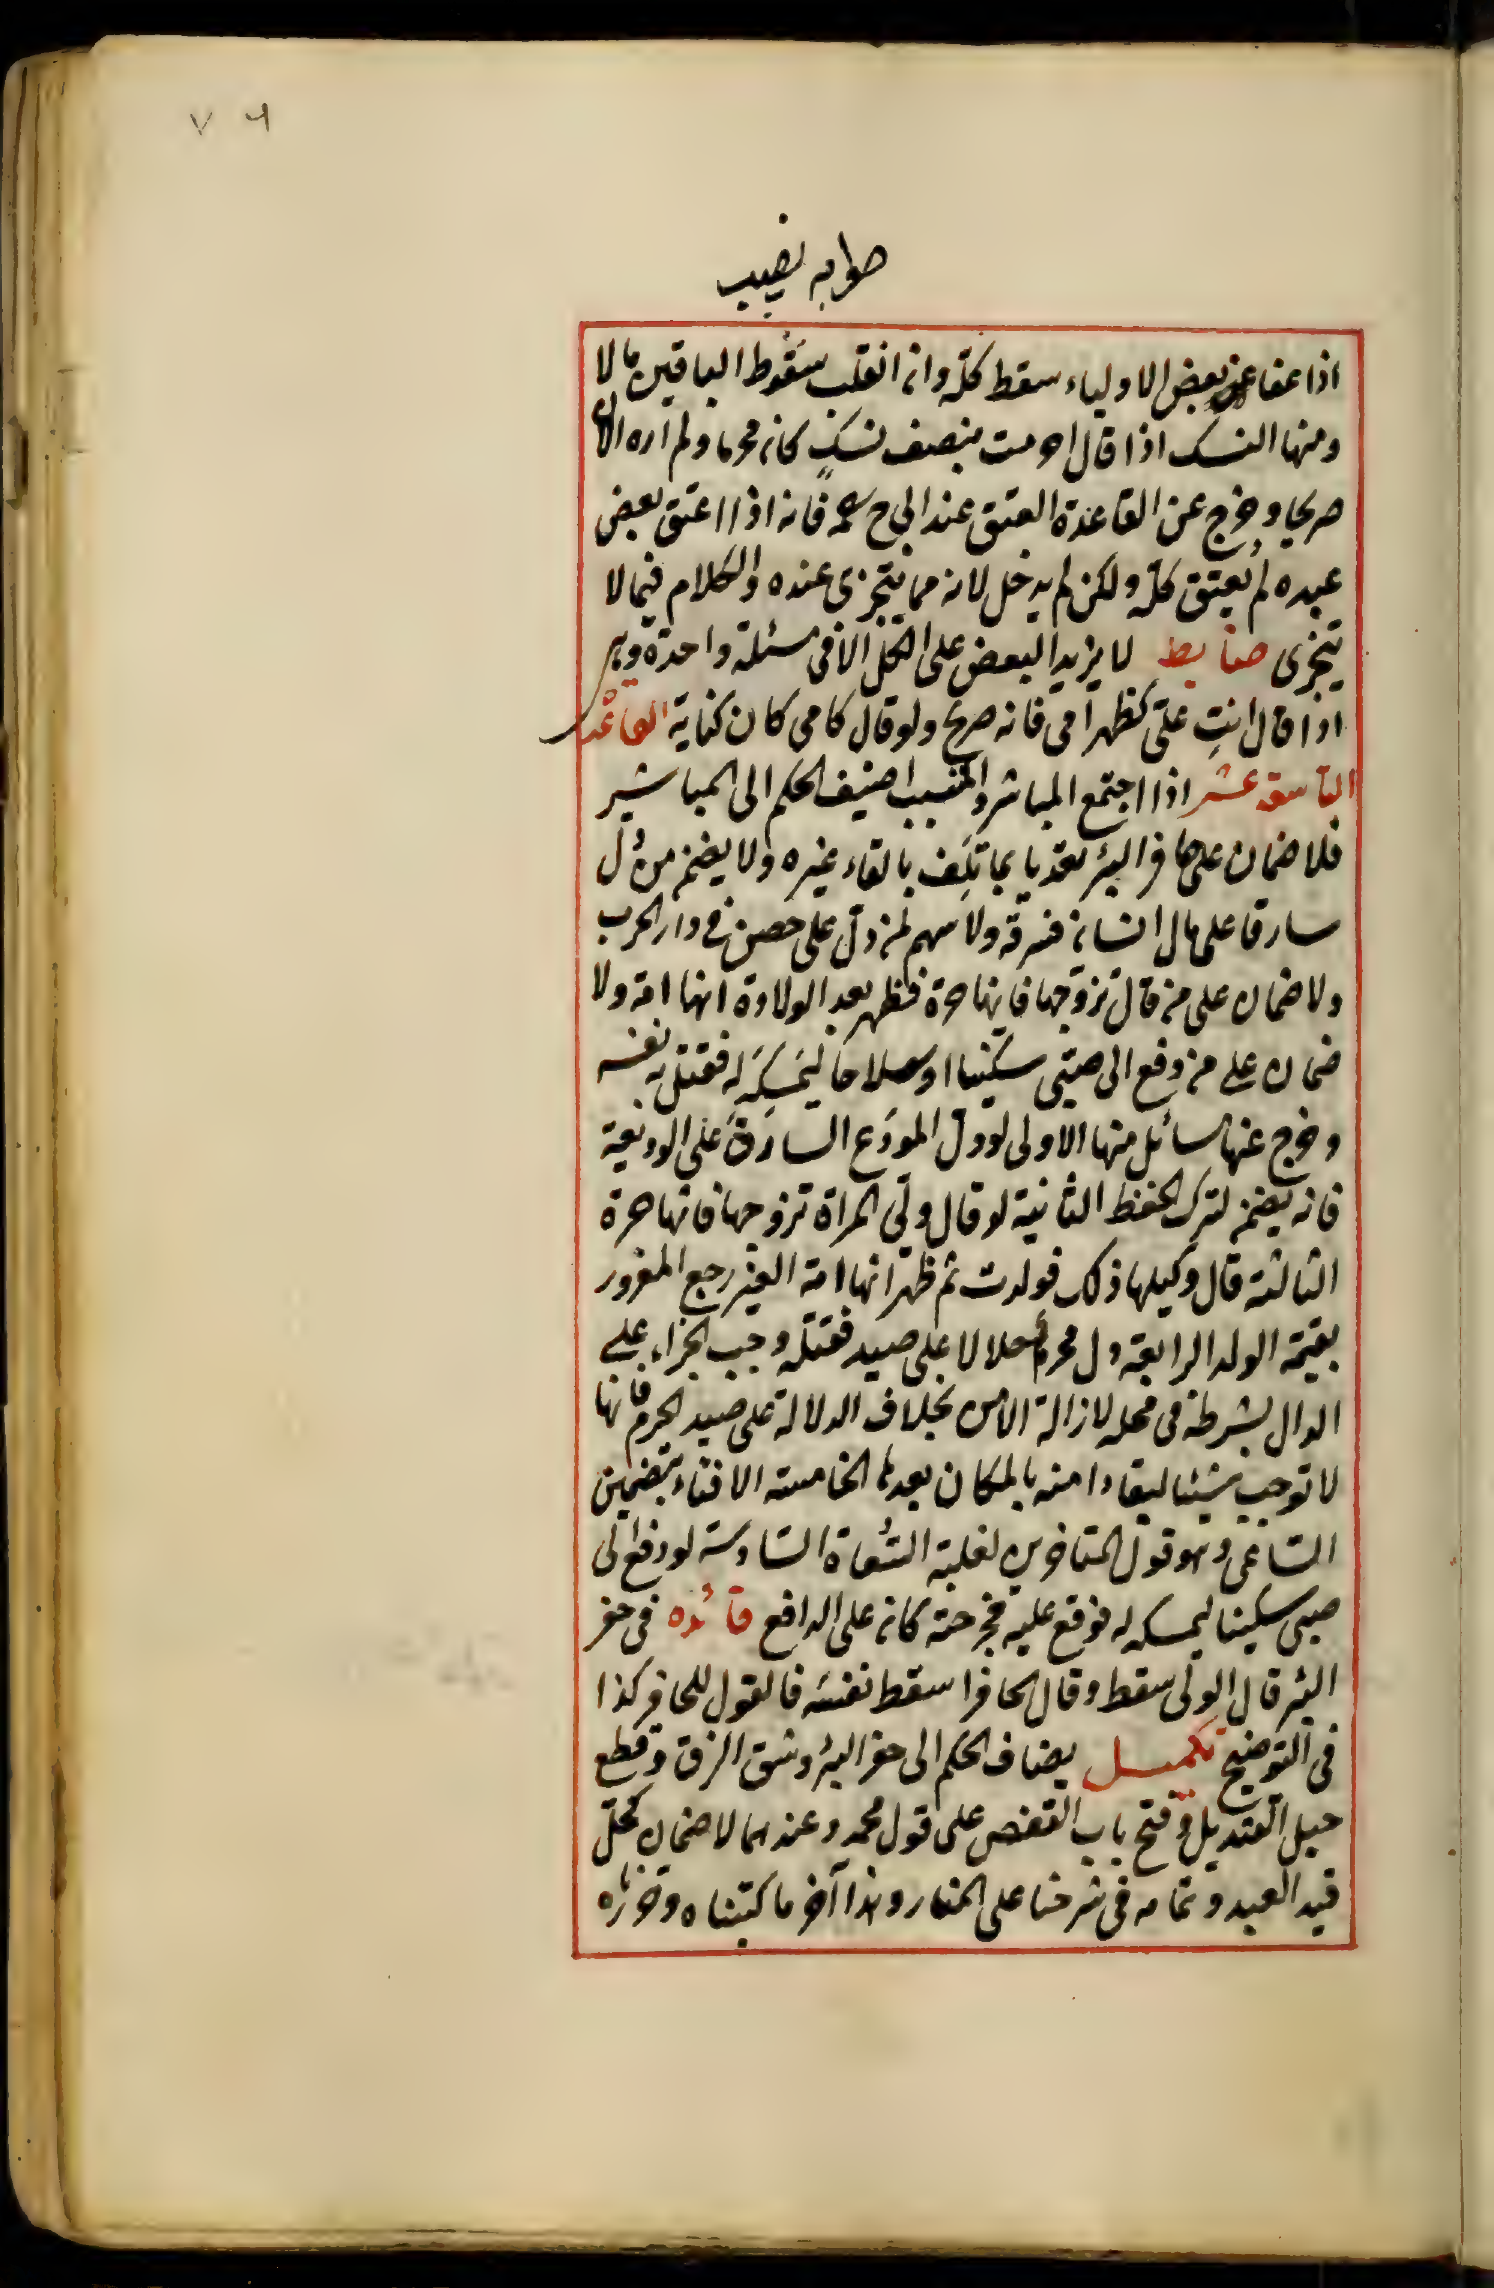 صوابه نصيب
اذا عفا عن بعض الاولياء سقط كله وان انقلب سقوط الباقين مالا
ومنها النسك اذا قال احرمت بنصف نسك كان محرما ولم اره الان
صريحا وخرج عن القاعدة العتق عند ابي ح رحمه فانه اذا اعتق بعض
عبده لم يعتق كله ولكن لم يدخل لانه مما يتجزى عنده والكلام فيما لا
يتجزى ضابط لا يزيد البعض على الكل الا في مسئلة واحدة وهي
اذا قال انتِ علىّ كظهر امى فانه صريح ولو قال كامي كان كناية القاعدة
التاسعة عشر اذا اجتمع المباشر والمتسبب اضيف الحكم الى المباشر
فلا ضمان على حافر البئر تعديا بما تلف بالقاء غيره ولا يضمن من دل
سارقا على مال انسان فسرقه ولا سهم لمن دل على حصن في دار الحرب
ولا ضمان على من قال تزوجها فانها حرة فظهر بعد الولادة انها امة ولا
ضمان على من دفع الى صبي سكينا او سلاحا ليمسكه له فقتل به نفسه
وخرج عنها مسائل منها الاولى لو دل المودَع السارقَ على الوديعة
فانه يضمن لترك الحفظ الثانية لو قال ولي المراة تزوجها فانها حرة
الثالثة قال وكيلها ذلك فولدت ثم ظهر انها امة الغير رجع المغرور
بقيمة الولد الرابعة دل محرم حلالا على صيد فقتله وجب الجزاء على
الدال بشرطه في محله لازالة الامن بخلاف الدلالة على صيد الحرم فانها
لا توجب شيئا لبقاء امنه بالمكان بعدها الخامسة الافتاء بتضمين
الساعي وهو قول المتاخرين لغلبة السعاة السادسة لو دفع الى
صبي سكينا ليمسكه له فوقع عليه فجرحته كان على الدافع فائده في حفر
البئر قال الولي سقط وقال الحافر اسقط نفسه فالقول للحافر كذا
في التوضيح تكميل يضاف الحكم الى حفر البئر وشق الزق وقطع
حبل القنديل وفتح باب القفص على قول محمد وعندهما لا ضمان كحل
قيد العبد وتمامه في شرحنا على المنار وهذا آخر ما كتبناه وحررناه